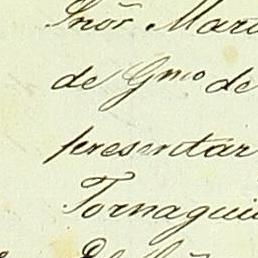 Snõr Mar
de Gmo de
presentar
Tornagui